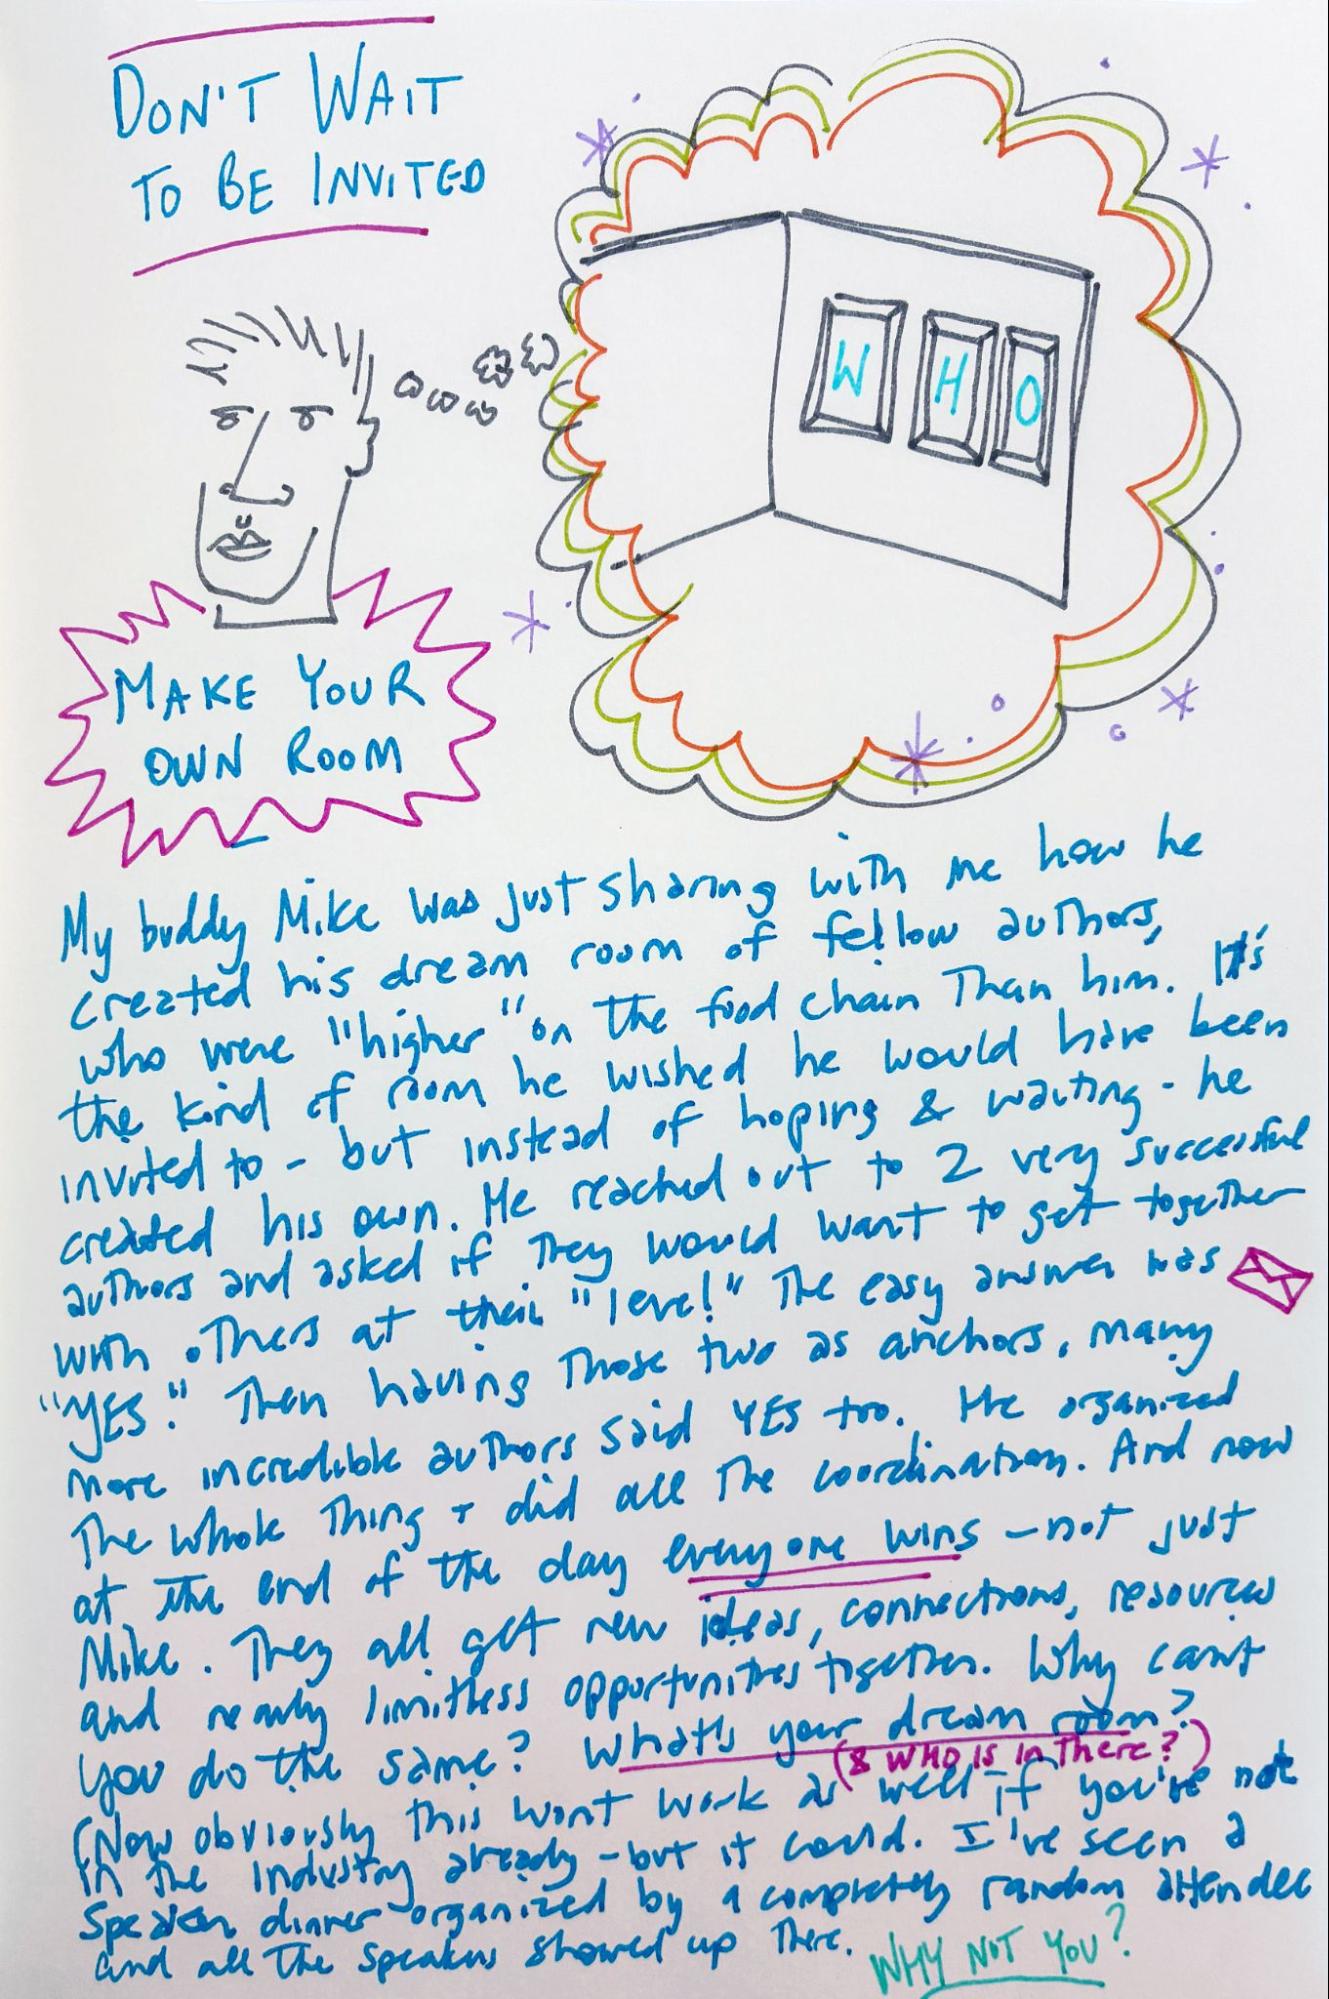 DON'T WAIT
TO BE INVITED
W H O
MAKE YOUR
OWN ROOM
My buddy Mike was just sharing with me how he
created his dream room of fellow authors,
who were "higher" on the food chain than him. It's
the kind of room he wished he would have been
invited to - but instead of hoping & waiting - he
created his own. He reached out to 2 very successful
authors and asked if they would want to get together
with others at their "level!" The easy answer was
"YES." Then having those two as anchors, many
more incredible authors said YES too. He organized
the whole thing + did all the coordination. And now
at the end of the day everyone wins - not just
Mike. They all get new ideas, connections, resources
and nearly limitless opportunities together. Why can't
you do the same? What's your dream room?
(& WHO IS IN THERE?)
(Now obviously this won't work as well if you're not
in the industry already - but it could. I've seen a
speaker dinner organized by a completely random attendee
and all the speakers showed up there.
WHY NOT YOU?